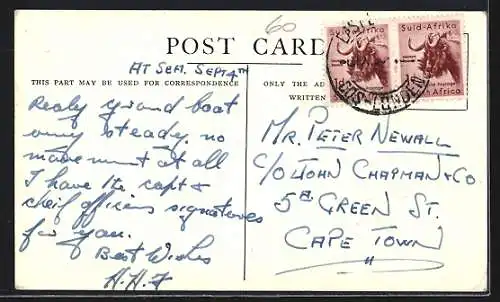 60
POST CARD
THIS PART MAY BE USED FOR CORRESPONDENCE
ONLY THE AD
WRITTEN
Suid-Afrika
Suid-Afrika
Afrika
OOS-LONDEN
AT SEA. SEPT 4TH
Realy grand boat
very steady. no
movement at all
I have the capt &
cheif officers signatures
for you.
Best Wishes
MR. PETER NEWALL
C/O JOHN CHAPMAN & CO
5A GREEN ST.
CAPE TOWN